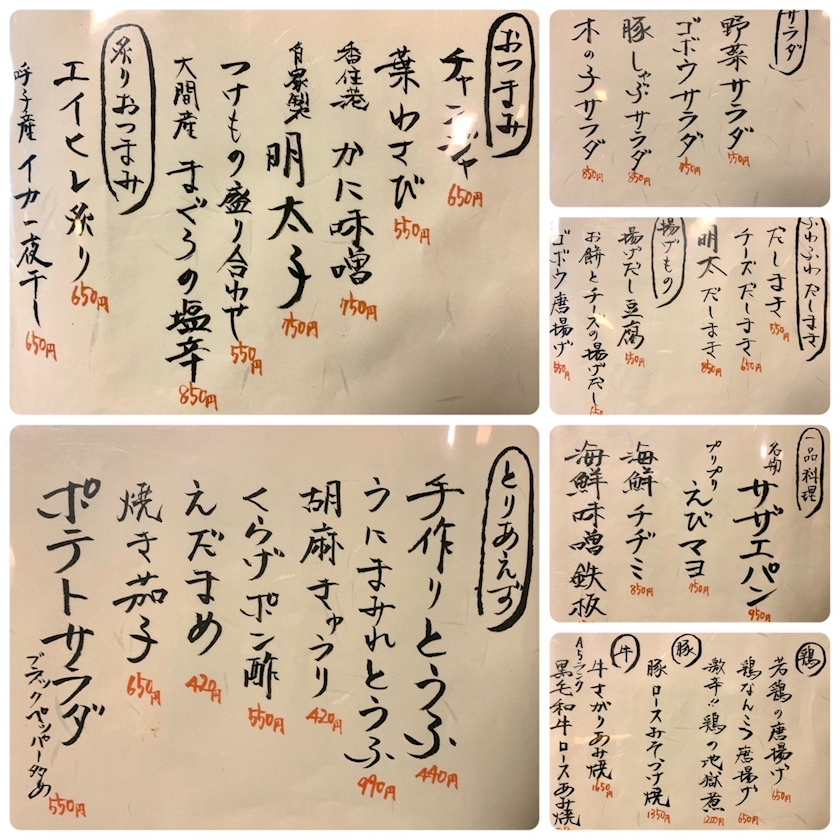 おつまみ
チャンジャ
650円
葉わさび
550円
香住港 かに味噌
750円
自家製 明太子
750円
つけもの盛り合わせ
550円
大間産 まぐろの塩辛
850円
炙りおつまみ
エイヒレ炙り
650円
呼子産 イカ一夜干し
650円
サラダ
野菜サラダ
550円
ゴボウサラダ
750円
豚しゃぶサラダ
850円
木の子サラダ
850円
ふわふわだしまき
だしまき
550円
チーズだしまき
650円
明太だしまき
850円
揚げもの
揚げだし豆腐
550円
お餅とチーズの揚げだし
650
ゴボウ唐揚げ
550円
とりあえず
手作りとうふ
440円
うにまみれとうふ
990円
胡麻きゅうり
420円
くらげポン酢
550円
えだまめ
420円
焼き茄子
650円
ポテトサラダ
ブラックペッパー多め
550円
一品料理
名物 サザエパン
950円
プリプリ えびマヨ
750円
海鮮チヂミ
850円
海鮮味噌鉄板
鶏
若鶏の唐揚げ
650円
鶏なんこつ唐揚げ
650円
激辛!!鶏の地獄煮
1200円
豚
豚ロースみそづけ焼
1350円
牛
牛さがりあみ焼
1650円
A5ランク
黒毛和牛ロースあみ焼